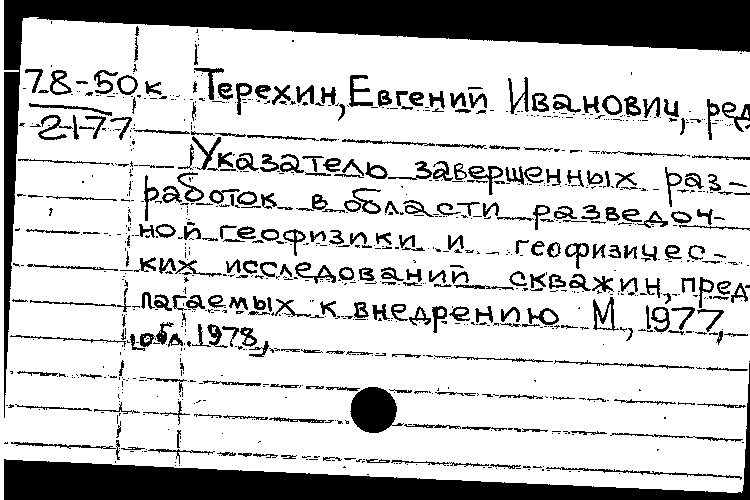 78-50к Терехин, Евгений Иванович, ред
2177
Указатель завершенных раз-
работок в области разведоч-
ной геофизики и геофизичес-
ких исследований скважин, пред
лагаемых к внедрению М, 1977,
обл. 1978,